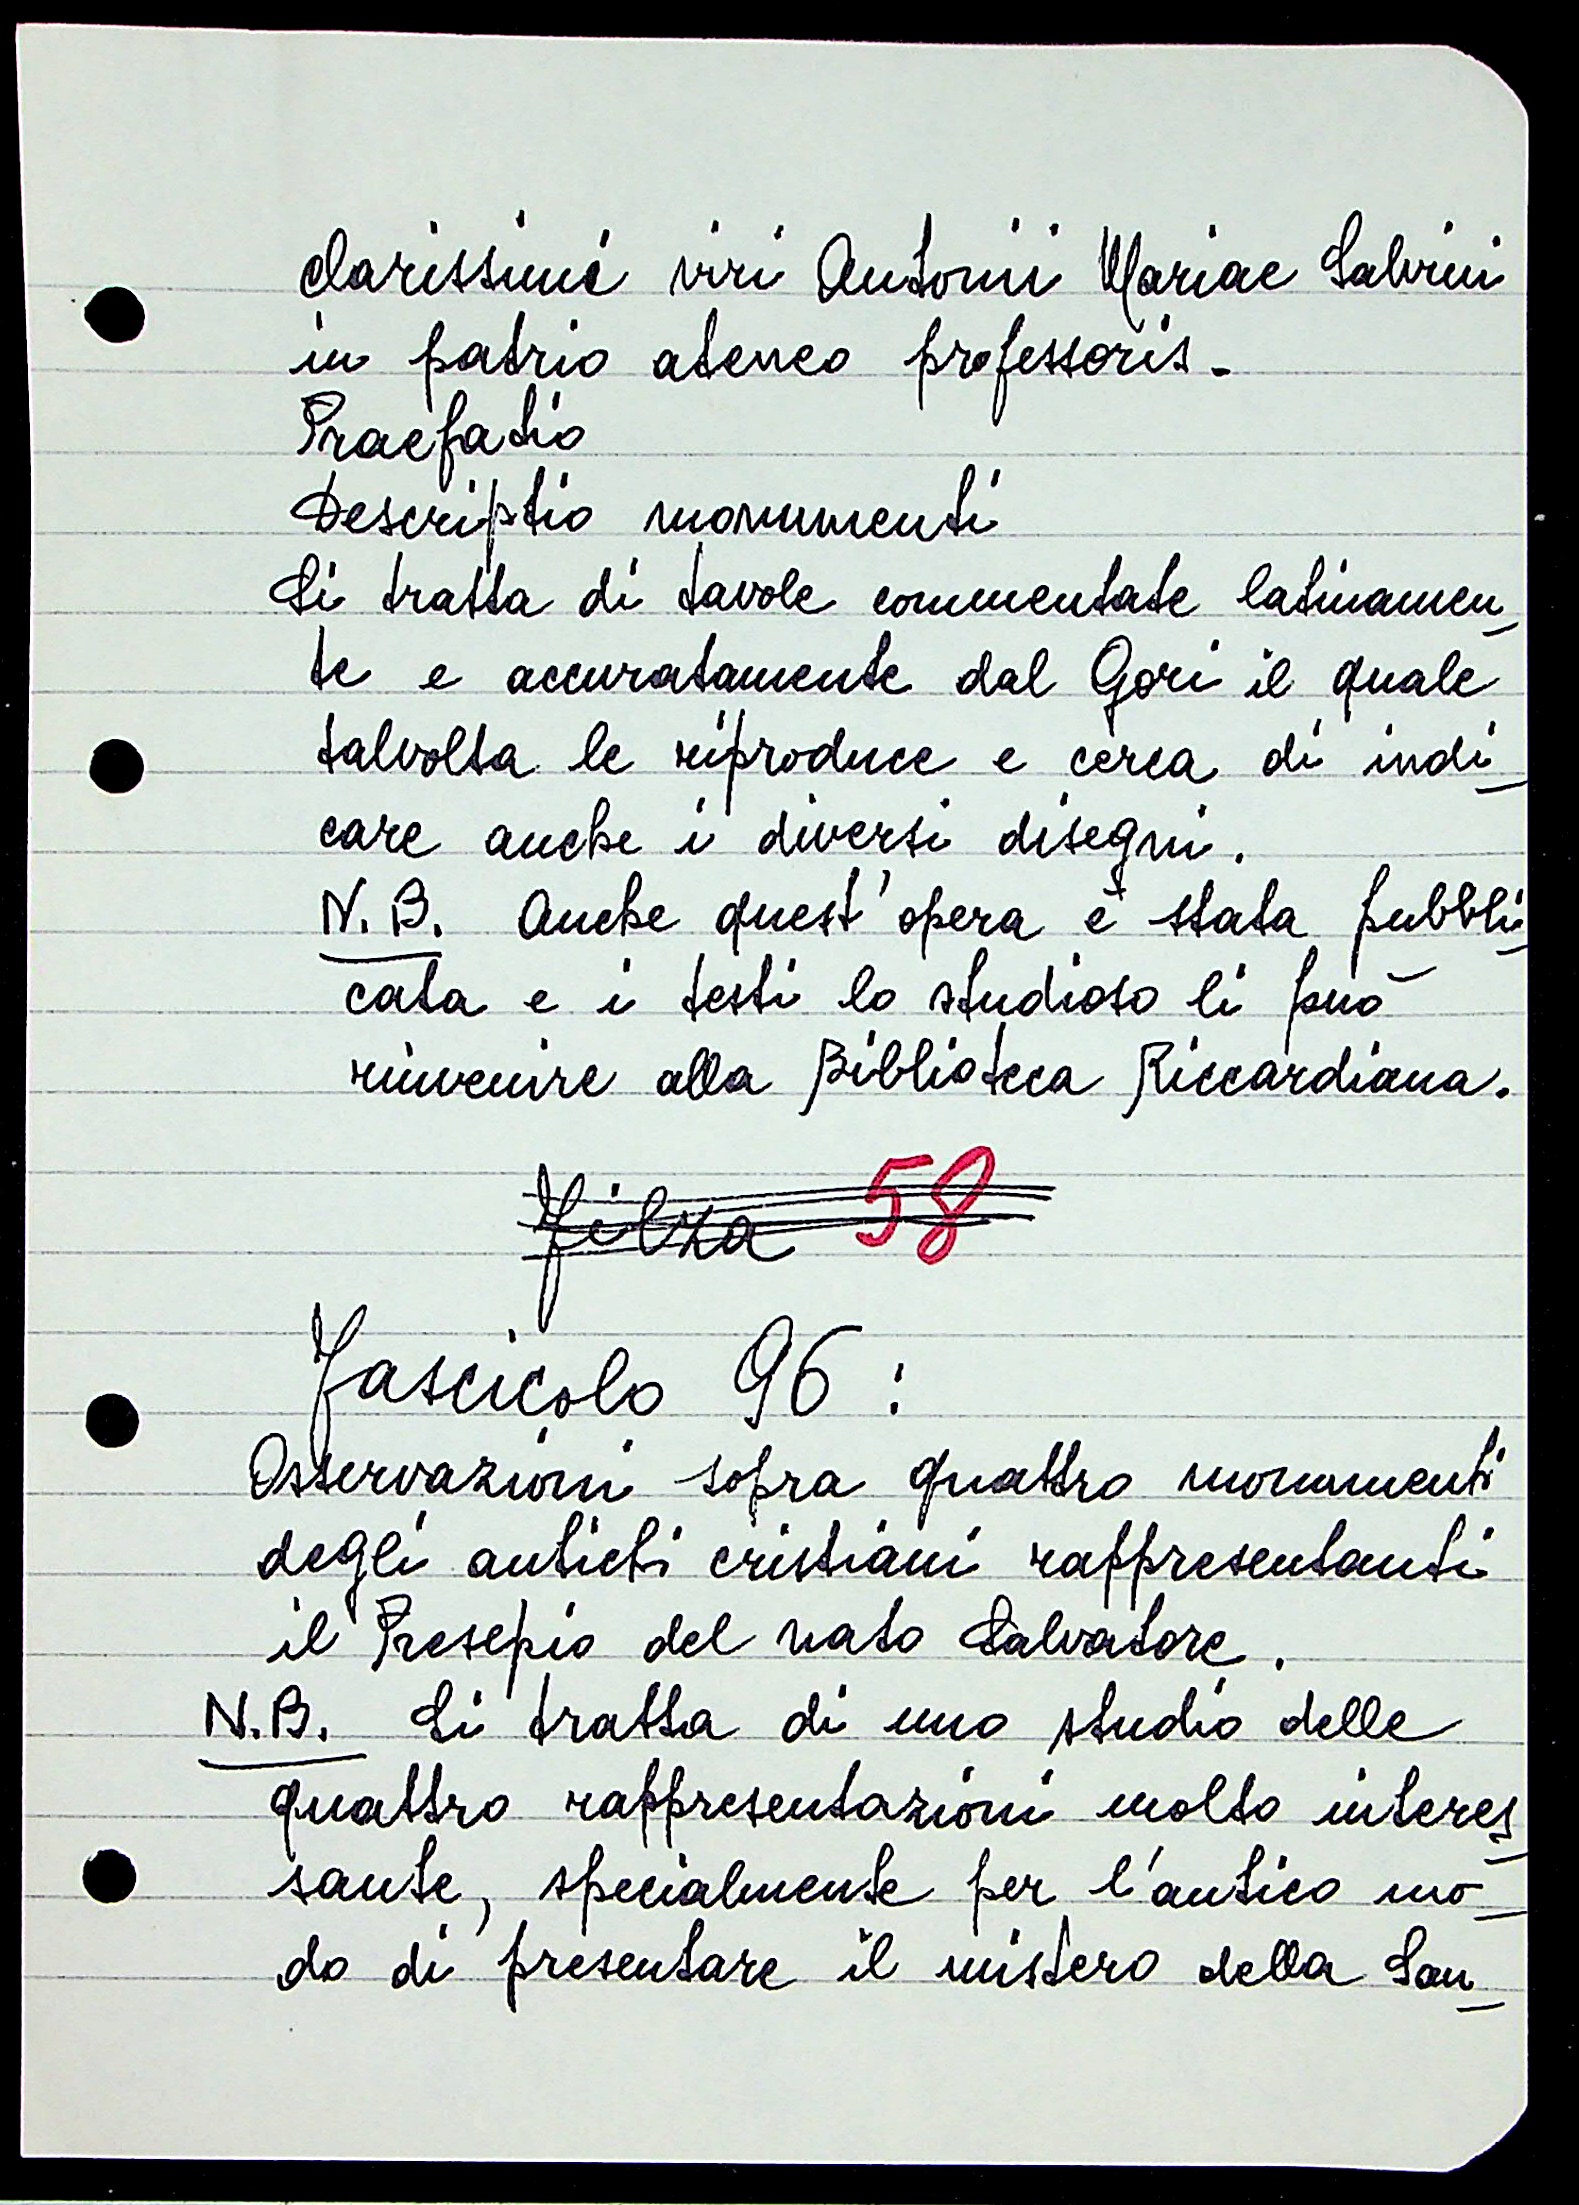 clarissimi viri Antonii Mariae Salvini
in patrio ateneo professoris.
Praefatio
Descriptio monumenti
Si tratta di tavole commentate latinamen_
te e accuratamente dal Gori il quale
talvolta le riproduce e cerca di indi_
care anche i diversi disegni.
N.B. Anche quest'opera è stata pubbli_
cata e i testi lo studioso li può
rinvenire alla Biblioteca Riccardiana.
filza 58
Fascicolo 96:
Osservazioni sopra quattro monumenti
degli antichi cristiani rappresentanti
il Presepio del nato Salvatore.
N.B. Si tratta di uno studio delle
quattro rappresentazioni molto interes_
sante, specialmente per l'antico mo_
do di presentare il mistero della San_